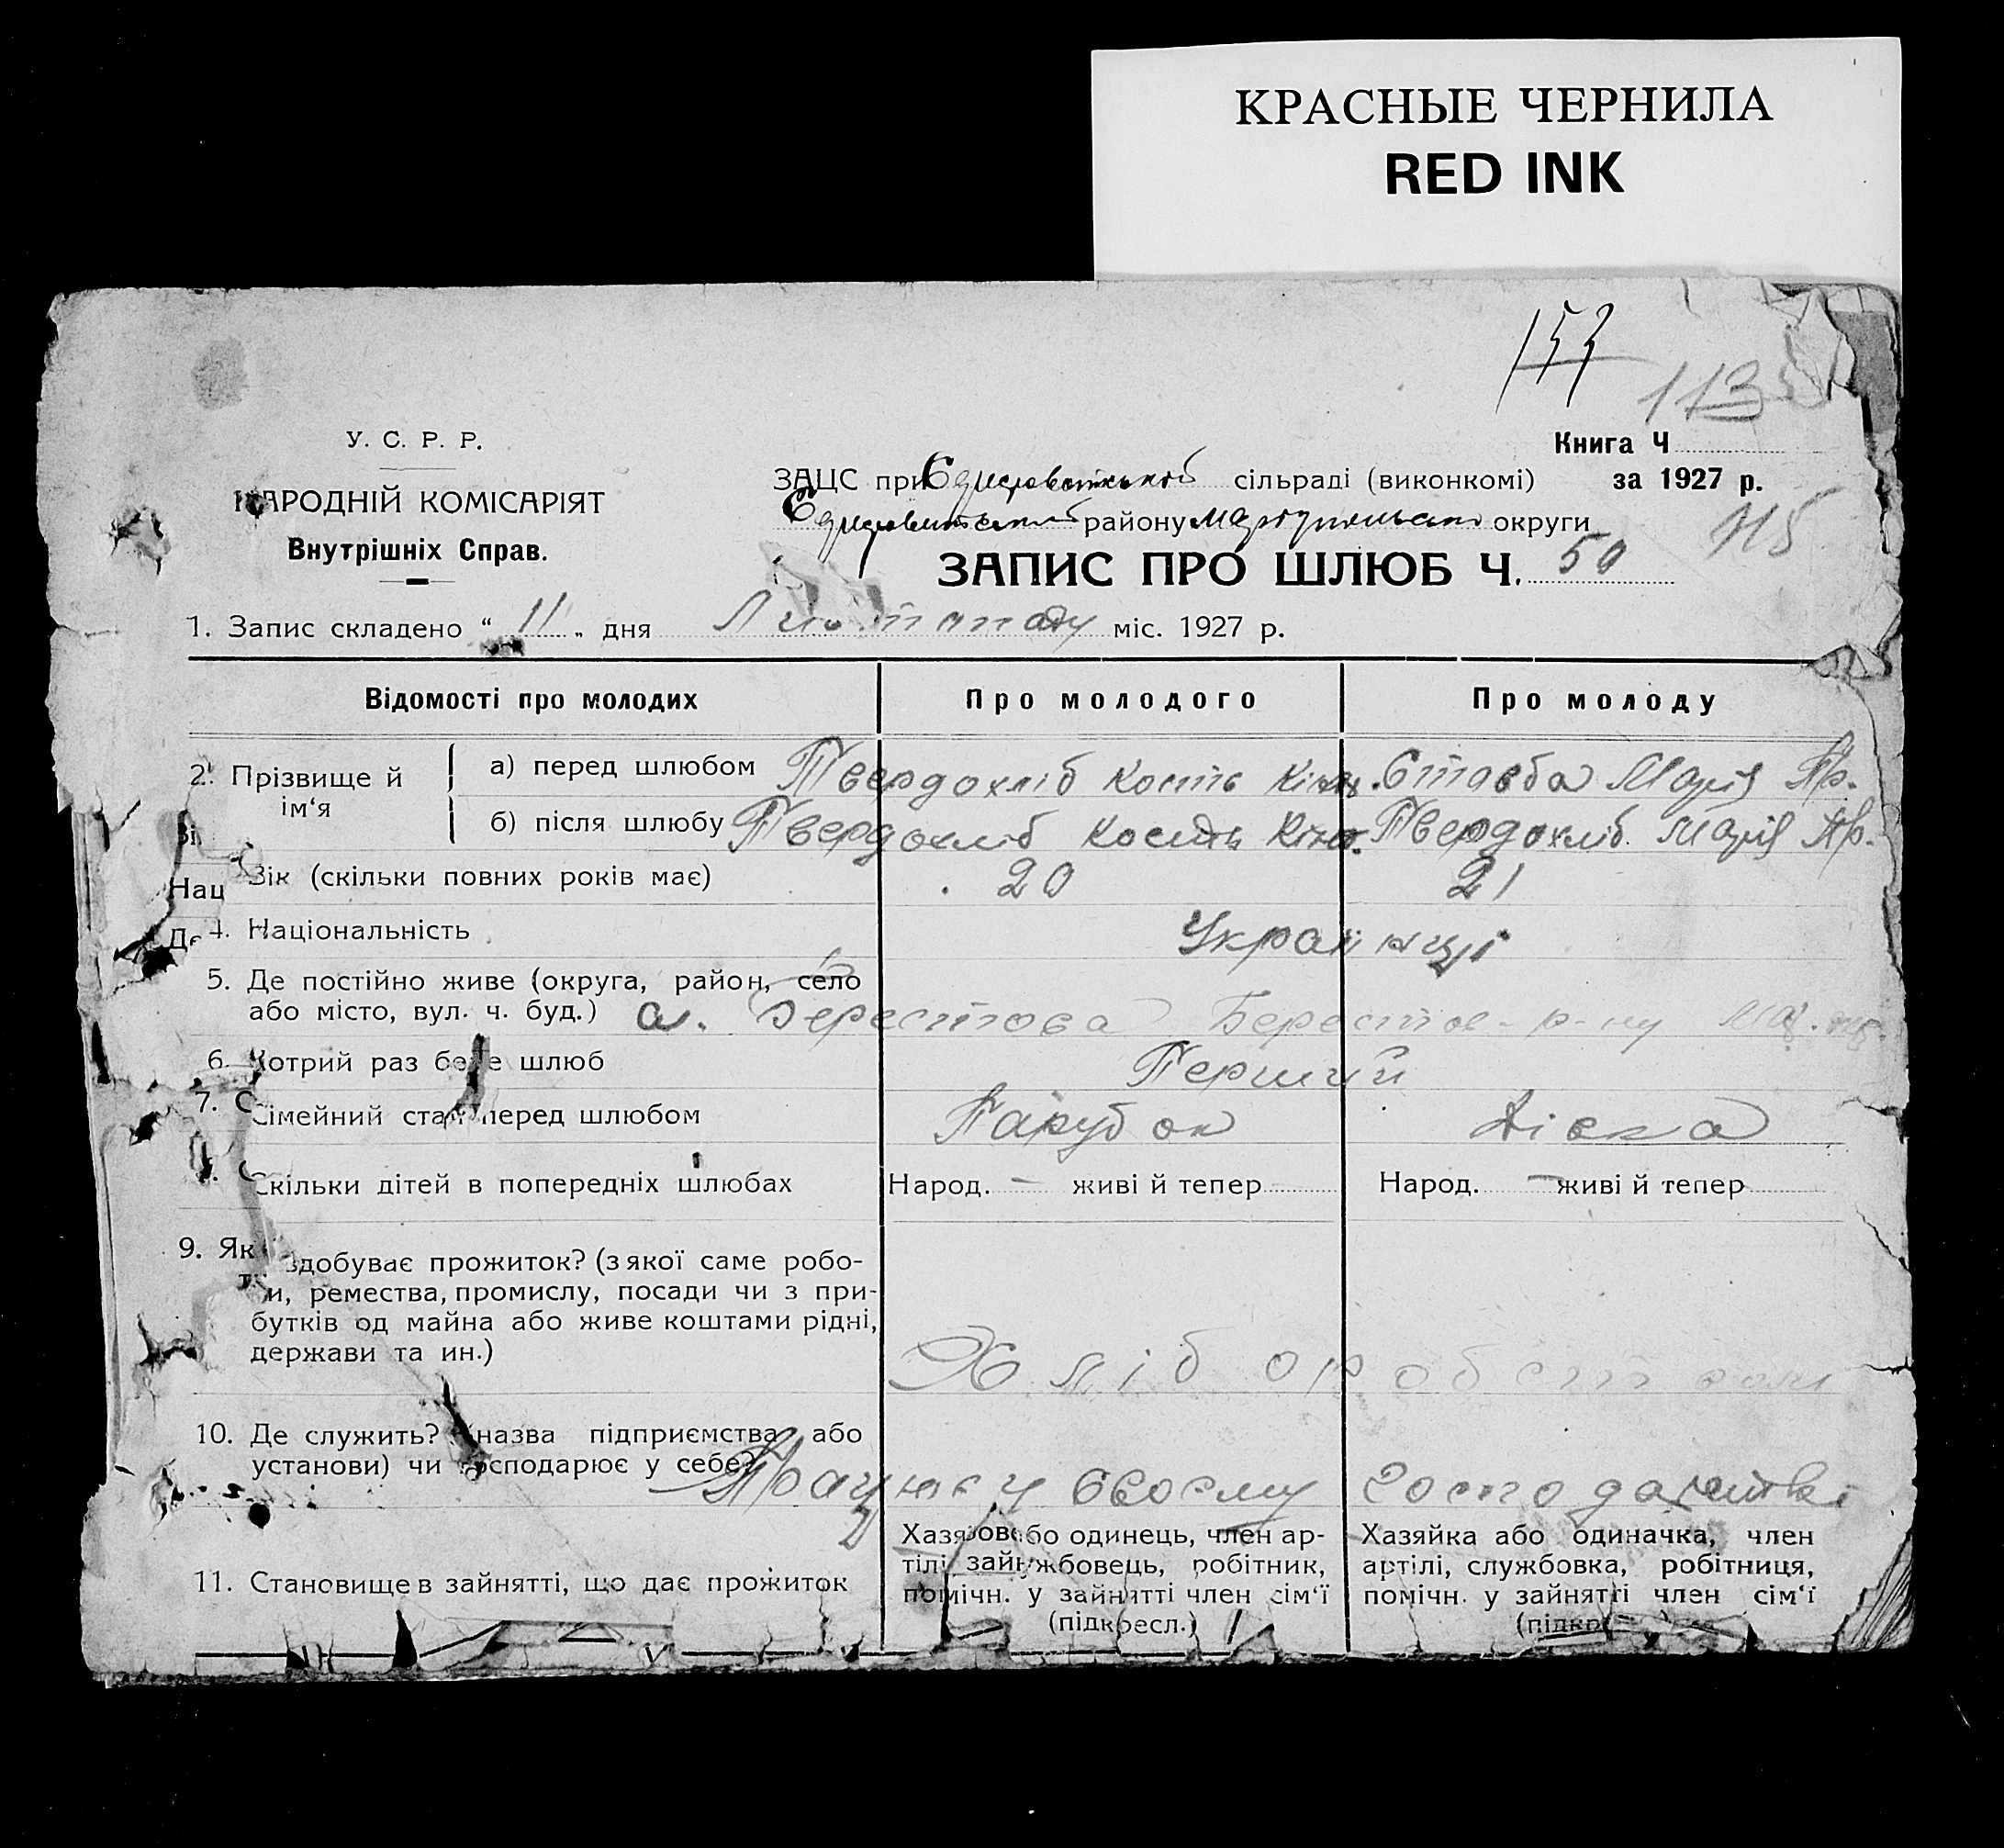 КРАСНЫЕ ЧЕРНИЛА
RED INK
113
У. С. Р. Р.
НАРОДНІЙ КОМІСАРІЯТ
Внутрішніх Справ.
Книга Ч
ЗАЦС при сільраді (виконкомі) за 1927 р.
району Маріупольської округи
115
ЗАПИС ПРО ШЛЮБ Ч. 50
1. Запис складено “ 11 „ дня Листопаду міс. 1927 р.
Відомості про молодих Про молодого Про молоду
2. Прізвище й ім‘я
а) перед шлюбом Твердохліб Кость Марія
б) після шлюбу Твердохліб Кость Твердохліб Марія
Зік (скільки повних років має) 20 21
Нац
4. Національність Українці
5. Де постійно живе (округа, район, село
або місто, вул. ч. буд.) с. Берестова Берестов. р-ну
6. Котрий раз бере шлюб Перший
7. С
Сімейний стан перед шлюбом Парубок Дівка
Скільки дітей в попередніх шлюбах Народ. — живі й тепер Народ. — живі й тепер
9. Як
здобуває прожиток? (з якої саме робо-
ти, ремества, промислу, посади чи з при-
бутків од майна або живе коштами рідні,
держави та ин.)
Хліборобством
10. Де служить? (назва підприємства або
установи) чи господарює у себе?
Працює у своєму господарстві
11. Становище в зайнятті, що дає прожиток
Хазяїн або одинець, член ар-
тілі, службовець, робітник,
помічн. у зайнятті член сім‘ї
(підкресл.)
Хазяйка або одиначка, член
артілі, службовка, робітниця,
помічн. у зайнятті член сім‘ї